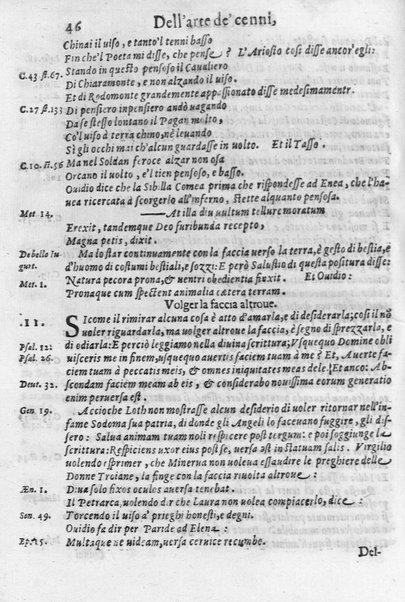 46 Dell'arte de' cenni,
Chinai il uiso, e tanto'l tenni basso
Fin che'l Poeta mi disse, che pense? L'Ariosto cosi disse ancor'egli:
C.43 st.67. Stando in questo pensoso il Caualiero
Di Chiaramonte, e non alzando il uiso.
Et di Rodomonte grandemente appassionato disse medesimamentr.
C.27 st.133 Di pensiero inpensiero andò uagando
Da se stesso lontano il Pagan molto,
Co'l uiso à terra chino, nè leuando
Sì gli occhi mai ch'alcun guardasse in uolto. Et il Tasso.
C.10. st.56 Ma nel Soldan feroce alzar non osa
Orcano il uolto, e'l tien pensoso, e basso.
Ouidio dice che la Sibilla Comea prima che rispondesse ad Enea, che l'ha-
uea ricercata à scorgerlo all'inferno, stette alquanto pensosa.
Met 14. At illa diu uultum tellure moratum
Erexit, tandemque Deo furibunda recepto,
Magna petis, dixit.
De bello Iu Ma lo star continuamente con la faccia uerso la terra, è gesto di bestia, e
gurt. d'huomo di costumi bestiali, e sozzi: E però Salustio di questa positura disse:
Natura pecora prona, & uentri obedientia fixit. Et Ouidio:
Met. 1. Pronaque cum spectent animalia cætera terram.
Volger la faccia altroue.
.11. SI come il rimirar alcuna cosa è atto d'amarla, e di desiderarla; cosi il nõ
uoler riguardarla, ma uolger altroue la faccia, è segno di sprezzarlo, e
Psal. 12: di odiarla: E perciò leggiamo nella diuina scrittura; Vsquequo Domine obli
Psal. 26. uisceris me in finem, usquequo auertis faciem tuam à me? Et, Auerte fa-
ciem tuam à peccatis meis, & omnes iniquitates meas dele. Et anco: Ab-
Deut. 32. scondam faciem meam ab eis, & considerabo nouissima eorum generatio
enim peruersa est.
Gen. 19. Accioche Loth non mostrasse alcun desiderio di uoler ritornar nell'in-
fame Sodoma sua patria, di donde gli Angeli lo faceuano fuggire, gli dis-
sero: Salua animam tuam noli respicere post tergum: e poi soggiunge la
scrittura: Respiciens uxor eius post se, uersa est in statuam salis. Virgilio
uolendo esprimer, che Minerua non uoleua essaudire le preghiere delle
Donne Troiane, la finge con la faccia riuolta altroue:
Æn. 1. Diua solo fixos oculos auersa tenebat.
Il Petrarca uolendo dir che Laura non uolea compiacerlo, dice:
Son. 49. Torcendo il uiso à prieghi honesti, e degni.
Ouidio fa dir per Paride ad Elena:
Ep. 15. Multaque ne uideam, uersa ceruice recumbo.
Del-